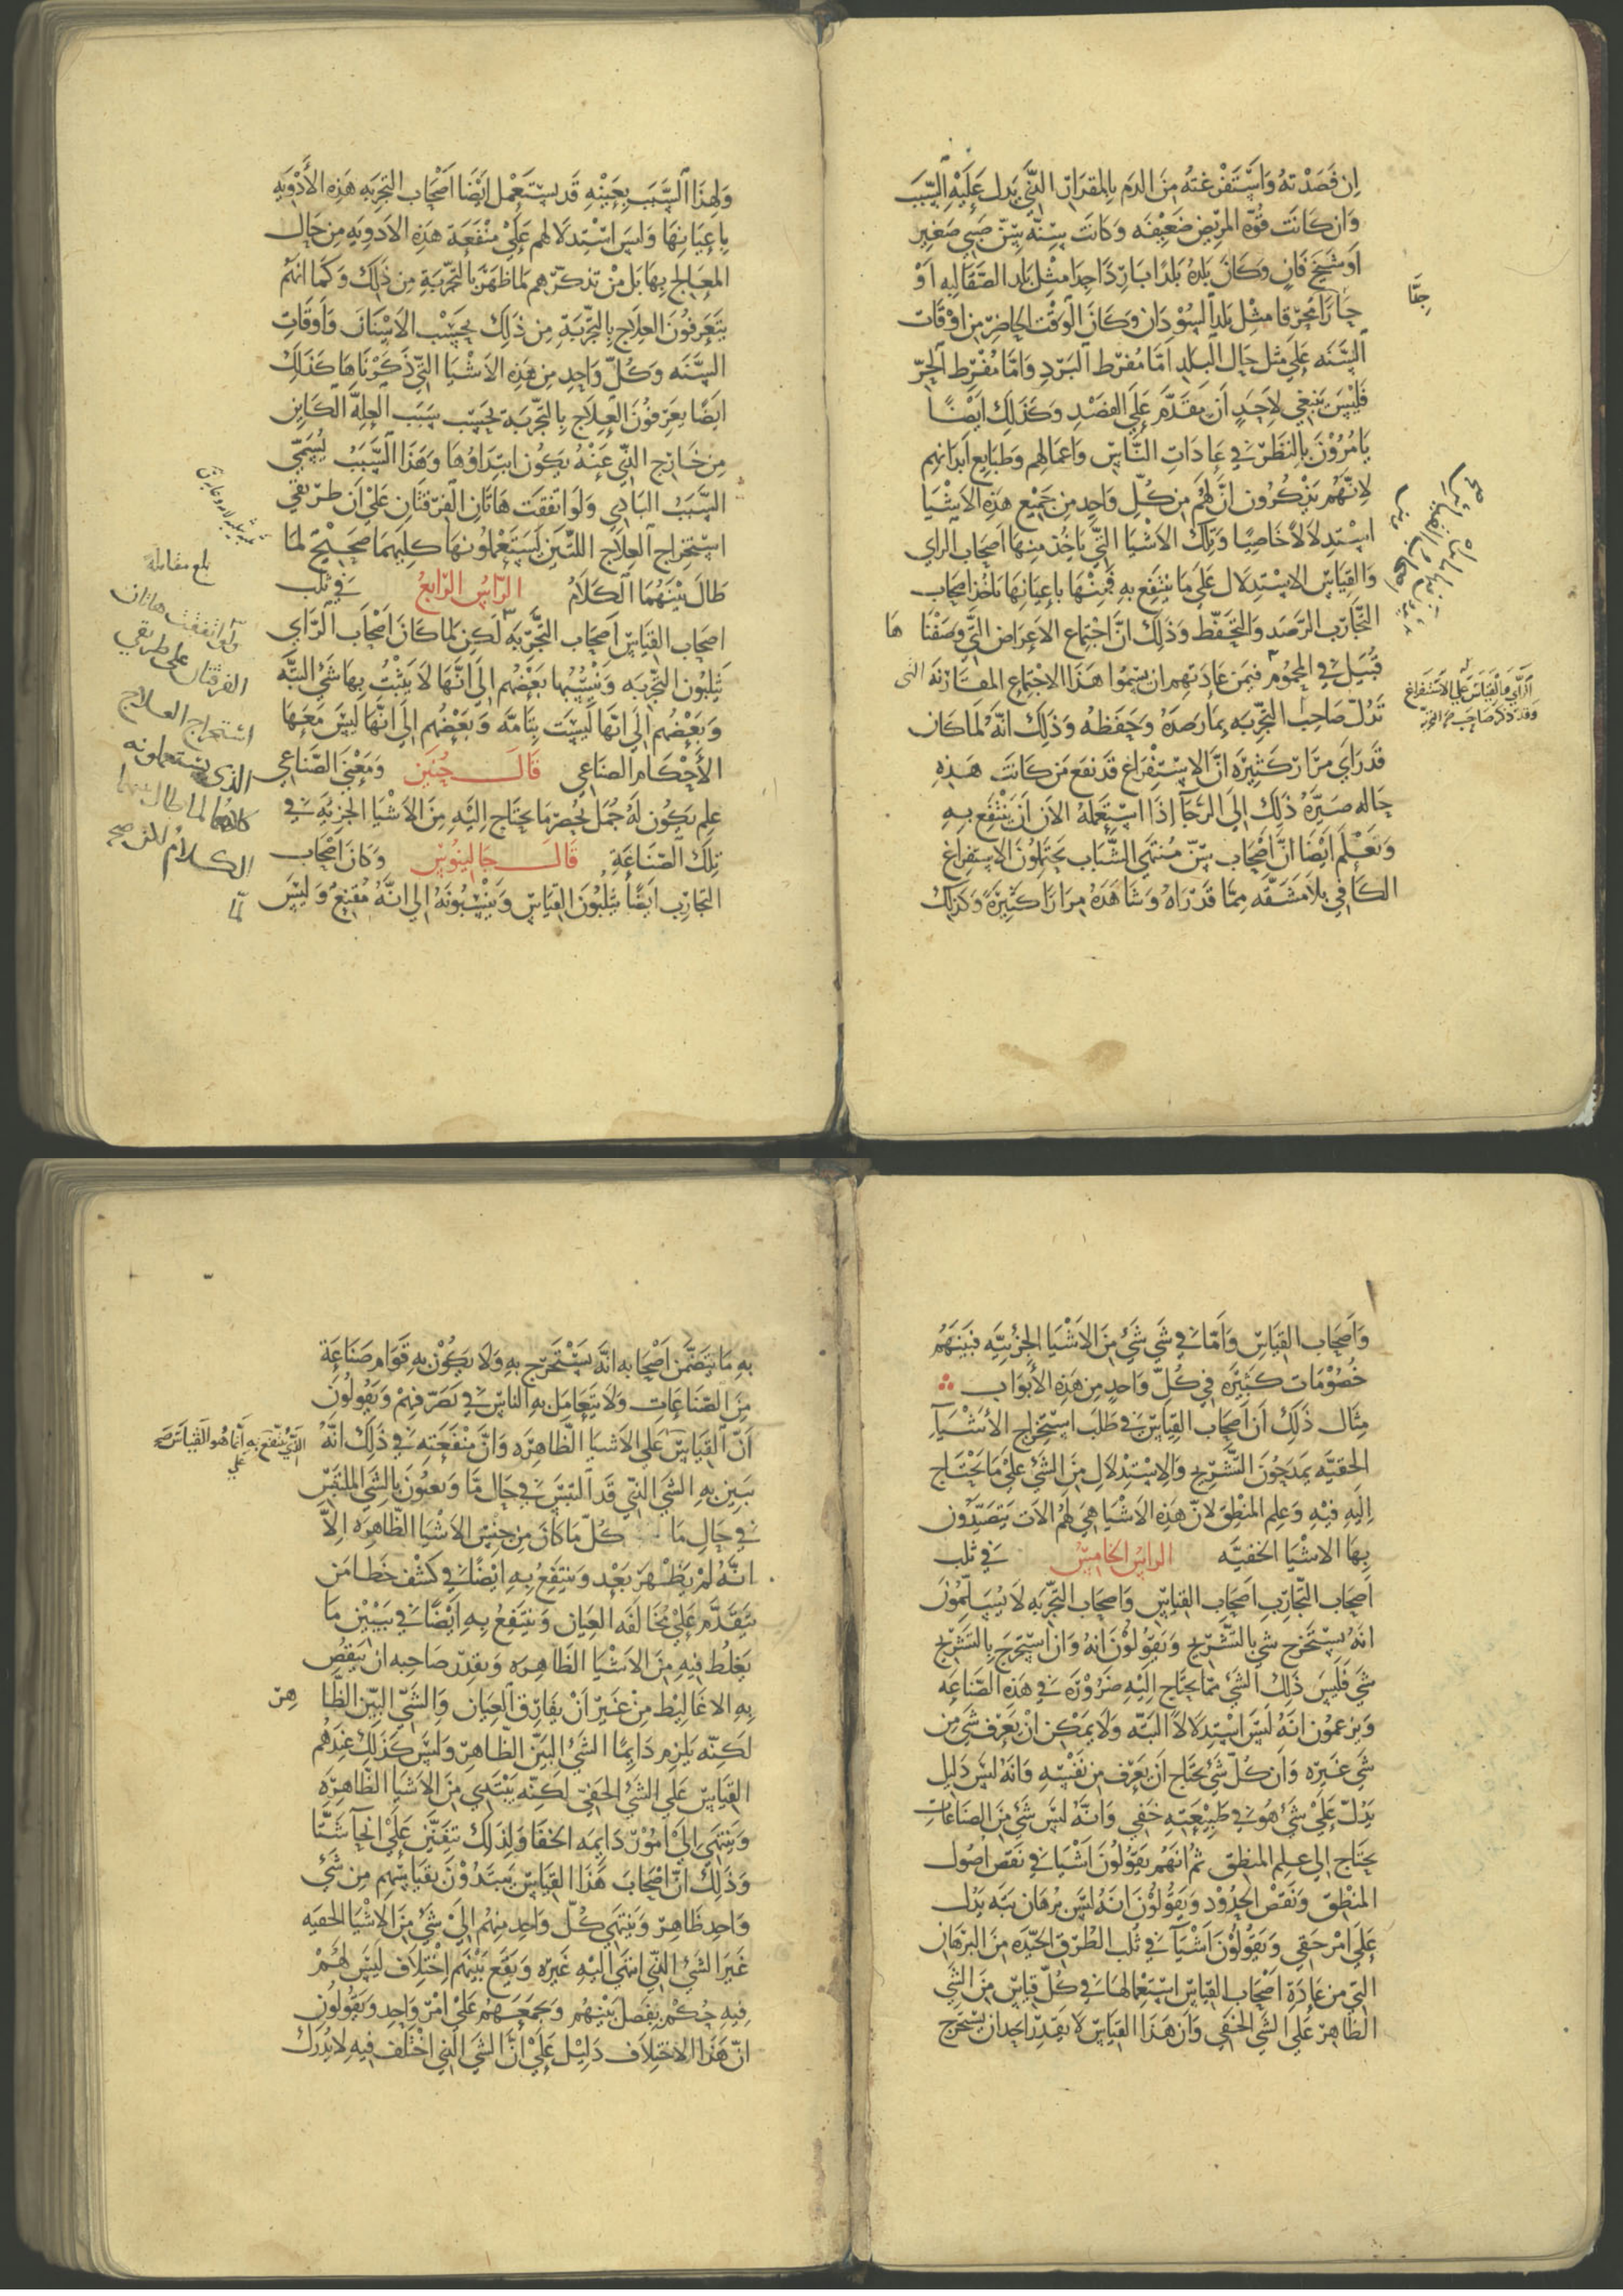 ان فصدته واستفرغته من الدم بالمقدار الذي يدل عليه السبب
وان كانت قوة المريض ضعيفه وكانت سنه سن صبي صغير
او شيخ فان وكان بلده بلدا باردا جدا مثل بلد الصقالبه او
حارا محرقا مثل بلد السودان وكان الوقت الحاضر من اوقات
السنه على مثل حال البلد اما مفرط البرد واما مفرط الحر
فليس ينبغي لاحد ان يقدم على الفصد وكذلك ايضا
يامرون بالنظر في عادات الناس واعمالهم وطبايع ابدانهم
لانهم يذكرون ان لهم من كل واحد من جميع هذه الاشيا
استدلالا خاصيا وتلك الاشيا التي ياخذ منها اصحاب الراي
والقياس الاستدلال على ما ينتفع به فمنها باعيانها ياخذ اصحاب
التجارب الرصد والتحفظ وذلك ان اجتماع الاعراض التي وصفنا ها
قبيل في المحموم فيمن عادتهم ان يسموا هذا الاجتماع المقارنه التى
تدل صاحب التجربه بما رصده وحفظه وذلك انه لما كان
قد راى مرارا كثيره ان الاستفراغ قد نفع من كانت هذه
حاله صيره ذلك الى الرجآ اذا استعمله الان ان ينتفع به
ونعلم ايضا ان اصحاب سن منتهى الشباب يحتملون الاستفراغ
الكافي بلا مشقه مما قد راه وشاهده مرارا كثيرة وكذلك
الراي والقياس على الاستفراغ
ولهذا السبب بعينه قد يستعمل ايضا اصحاب التجربه هذه الأدويه
باعيانها وليس استدلالهم على منفعة هذه الادويه من حال
المعالج بها بل من تذكرهم لما ظهر بالتجربة من ذلك وكما انهم
يتعرفون العلاج بالتجربة من ذلك بحسب الاسنان واوقات
السنه وكل واحد من هذه الاشيا التي ذكرناها كذلك
ايضا يعرفون العلاج بالتجربة بحسب سبب العلة الكاين
من خارج الذي عنه يكون ابتداوها وهذا السبب يسمى
السبب البادي ولو اتفقت هاتان الفرقتان على ان طريقي
استخراج العلاج اللتين يستعملونها كليهما صحيح لما
طال بينهما الكلام الراس الرابع في ثلب
اصحاب القياس اصحاب التجربه لكن لما كان اصحاب الراي
يثلبون التجربه وينسبها بعضهم الى انها لا يثبت بها شي البته
وبعضهم الى انها ليست بتامه وبعضهم الى انها ليس معها
الأحكام الصناعي قال حنين ومعنى الصناعي
علم يكون له جمل يحصر ما يحتاج اليه من الاشيا الجزيه في
تلك الصناعة قال جالينوس وكان اصحاب
التجارب ايضا يثلبون القياس وينسبونه الى انه مقنع وليس
بلغ مقابلة
ولو اتفقت هاتان
الفرقتان على طريقي
استخراج العلاج
الذى يستعملونه
كلاهما لما طال بينهما
الكلام
واصحاب القياس واما في شي شي من الاشيا الجزئيه فبينهم
خصومات كثيره في كل واحد من هذه الأبواب
مثال ذلك ان اصحاب القياس في طلب استخراج الأشيآ
الخفيه يمدحون التشريح والاستدلال من الشي على ما يحتاج
اليه فيه وعلم المنطق لان هذه الاشيا هي لهم الات يتصيدون
بها الاشيا الخفيه الراس الخامس في ثلب
اصحاب التجارب اصحاب القياس واصحاب التجربه لا يسلمون
انه يستخرج شي بالتشريح ويقولون انه وان استخرج بالتشريح
شي فليس ذلك الشي مما يحتاج اليه ضرورة في هذه الصناعه
ويزعمون انه ليس استدلالا البته ولا يمكن ان يعرف شي من
شي غيره وان كل شي يحتاج ان يعرف من نفسه وانه ليس دليل
يدل على شي هو في طبيعته خفي وانه ليس شي من الصناعات
يحتاج الى علم المنطق ثم انهم يقولون اشيا في نقض اصول
المنطق ونقض الحدود ويقولون انه ليس برهان بته يدل
على امر خفي ويقولون اشيآ في ثلب الطرق الجيده من البرهان
التي من عادة اصحاب القياس استعمالها في كل قياس من الشي
الظاهر على الشي الخفي وان هذا القياس لا يقدر احد ان يستخرج
به ما يتضمن اصحابه انه يستخرج به ولا يكون به قوام صناعة
من الصناعات ولا يتعامل به الناس في تصرفهم ويقولون
ان القياس على الاشيا الظاهره وان منفعته في ذلك انه
يبين به الشي الذي قد التبس في حال ما ويعنون بالشي الملتبس
في حال ما كل ما كان من جنس الاشيا الظاهره الا
انه لم يظهر بعد وينتفع به ايضا في كشف خطا من
يتقدم على مخالفه العيان وينتفع به ايضا في تبيين ما
يغلط فيه من الاشيا الظاهره ويقدر صاحبه ان ينقض
به الاغاليط من غير ان يفارق العيان والشي البين الظا هر
لكنه يلزم دايما الشي البين الظاهر وليس كذلك عندهم
القياس على الشي الخفي لكنه يبتدي من الاشيا الظاهره
وينتهي الى امور دايمه الخفا ولذلك تفنن على انحآ شتا
وذلك ان اصحاب هذا القياس يبتدون بقياسهم من شي
واحد ظاهر وينتهي كل واحد منهم الى شي من الاشيا الخفيه
غير الشي الذي انتهى اليه غيره ويقع بينهم اختلاف ليس لهم
فيه حكم يفصل بينهم ويجمعهم على امر واحد ويقولون
ان هذا الاختلاف دليل على ان الشي الذي اختلف فيه لا يدرك
الذي ينتفع به انما هو القياس صح
على